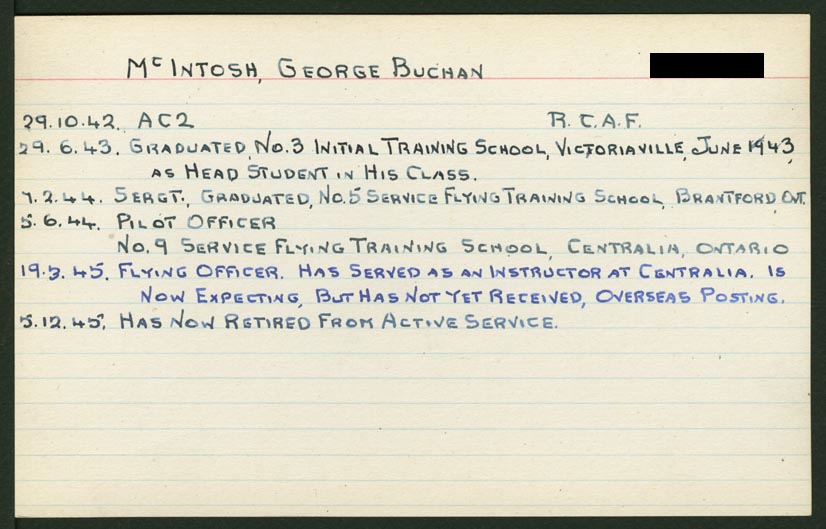 McINTOSH, GEORGE BUCHAN
29.10.42. AC2 R.C.A.F.
29.6.43. GRADUATED, NO.3 INITIAL TRAINING SCHOOL, VICTORIAVILLE, JUNE 1943
AS HEAD STUDENT IN HIS CLASS.
7.2.44. SERGT., GRADUATED, NO.5 SERVICE FLYING TRAINING SCHOOL, BRANTFORD, ONT.
5.6.44. PILOT OFFICER
NO.9 SERVICE FLYING TRAINING SCHOOL, CENTRALIA, ONTARIO
19.3.45. FLYING OFFICER. HAS SERVED AS AN INSTRUCTOR AT CENTRALIA. IS
NOW EXPECTING, BUT HAS NOT YET RECEIVED, OVERSEAS POSTING.
5.12.45. HAS NOW RETIRED FROM ACTIVE SERVICE.